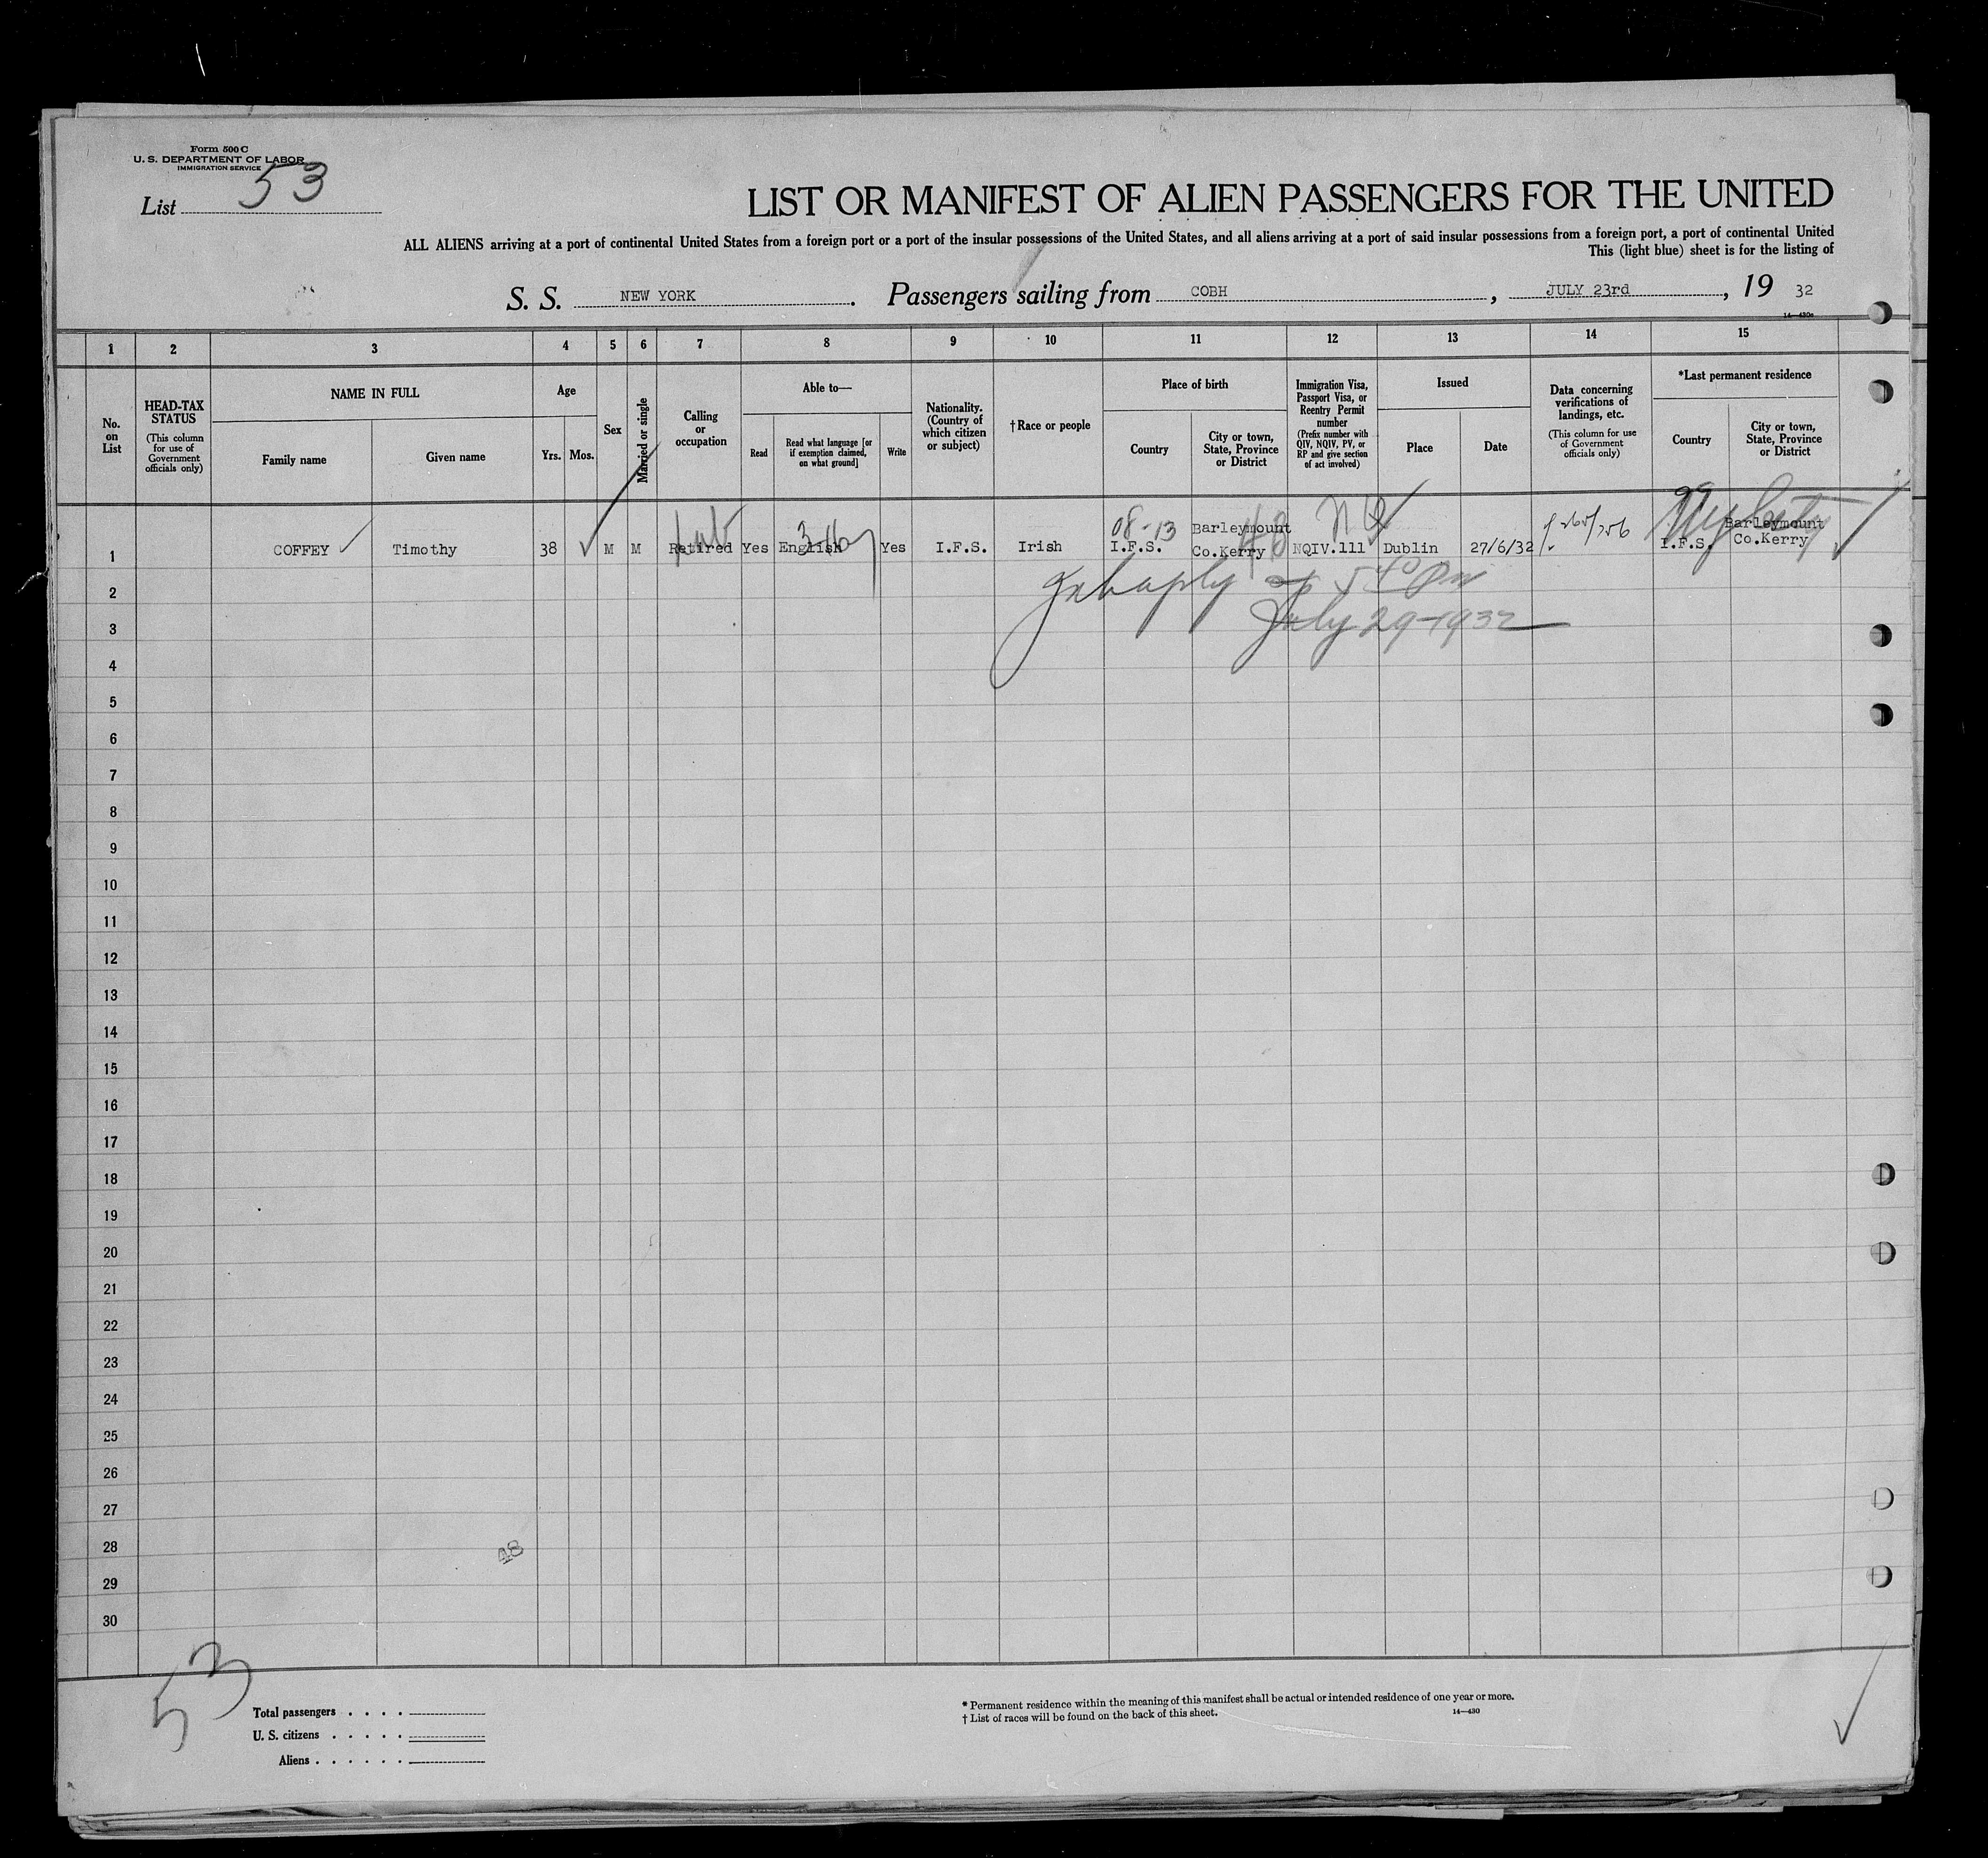 Form 500 C
U. S. DEPARTMENT OF LABOR
IMMIGRATION SERVICE
List 53
LIST OR MANIFEST OF ALIEN PASSENGERS FOR THE UNITED
ALL ALIENS arriving at a port of continental United States from a foreign port or a port of the insular possessions of the United States, and all aliens arriving at a port of said insular possessions from a foreign port, a port of continental United
This (light blue) sheet is for the listing of
S. S. NEW YORK. Passengers sailing from COBH, JULY 23rd, 19 32
14—430c
1 2 3 4 5 6 7 8 9 10 11 12 13 14 15
No. on List
HEAD-TAX STATUS (This column for use of Government officials only)
NAME IN FULL
Family name
Given name
Age
Yrs.
Mos.
Sex
Married or single
Calling or occupation
Able to—
Read
Read what language [or if exemption claimed, on what ground]
Write
Nationality. (Country of which citizen or subject)
†Race or people
Place of birth
Country
City or town, State, Province or District
Immigration Visa, Passport Visa, or Reentry Permit number (Prefix number with QIV, NQIV, PV, or RP and give section of act involved)
Issued
Place
Date
Data concerning verifications of landings, etc. (This column for use of Government officials only)
*Last permanent residence
Country
City or town, State, Province or District
08-13 Barleymount 48 NQ 99 Barleymount
1 COFFEY Timothy 38 M M Retired Yes English Yes I.F.S. Irish I.F.S. Co.Kerry NQIV.111 Dublin 27/6/32 I.F.S. Co.Kerry
2
July 29-1932
3
4
5
6
7
8
9
10
11
12
13
14
15
16
17
18
19
20
21
22
23
24
25
26
27
28
48
29
30
53
Total passengers . . . .
U. S. citizens . . . . .
Aliens . . . . . .
* Permanent residence within the meaning of this manifest shall be actual or intended residence of one year or more.
† List of races will be found on the back of this sheet.
14—430